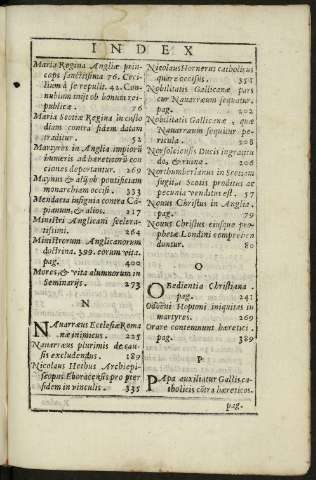 INDEX
Maria Regina Angliæ prin-
ceps sanctissima 76. Ceci-
lium à se repulit. 42. Con-
nubium iniit ob bonum rei-
publicæ. 76
Maria Scotiæ Regina in custo
diam contra fidem datam
traditur. 52
Martyres in Anglia impiorū
humeris ad hæreticorū con
ciones deportantur. 269
Maynus & alij ob pontificiam
monarchiam occisi. 333
Mendacia insignia contra Cā
pianum, & alios. 217
Ministri Anglicani scelera-
tissimi. 264
Ministrorum Anglicanorum
doctrina. 399. eorum vita.
pag. 400
Mores, & vita alumnorum in
Seminarijs. 273
N
NAuarræus Ecclesiæ Roma
næ inimicus. 225
Nauarræus plurimis de cau-
sis excludendus. 189
Nicolaus Hethus Archiepi-
scopus Eboracensis pro pter
fidem in vinculis. 335
Nicolaus Hornerus catholicus
quare occisus. 351
Nobilitatis Gallicanæ pars
cur Nauarræum sequatur.
pag. 202
Nobilitatis Gallicanæ, quæ
Nauarræum sequitur pe-
ricula. 208
Norfolciensis Ducis ingratitu
do, & ruina. 206
Northumberlanus in Scotiam
fugit, à Scotis proditus ac
pecunia venditus est. 57
Nouus Christus in Anglia.
pag. 79
Nouus Christus eiusque pro-
phetæ Londini comprehen
duntur. 80
O
OBedientia Christiana.
pag. 241
Odoëni Hoptoni iniquitas in
martyres. 269
Orare contemnunt hæretici.
pag. 389
P
PApa auxiliatur Gallis ca-
tholicis cōtra hæreticos.
pag.